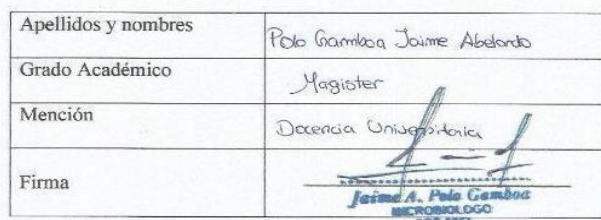 Apellidos y nombres
Polo Gamboa Jaime Abelardo
Grado Académico
Magister
Mención
Docencia Universitaria
Firma
Jaime A. Polo Gamboa
MICROBIOLOGO